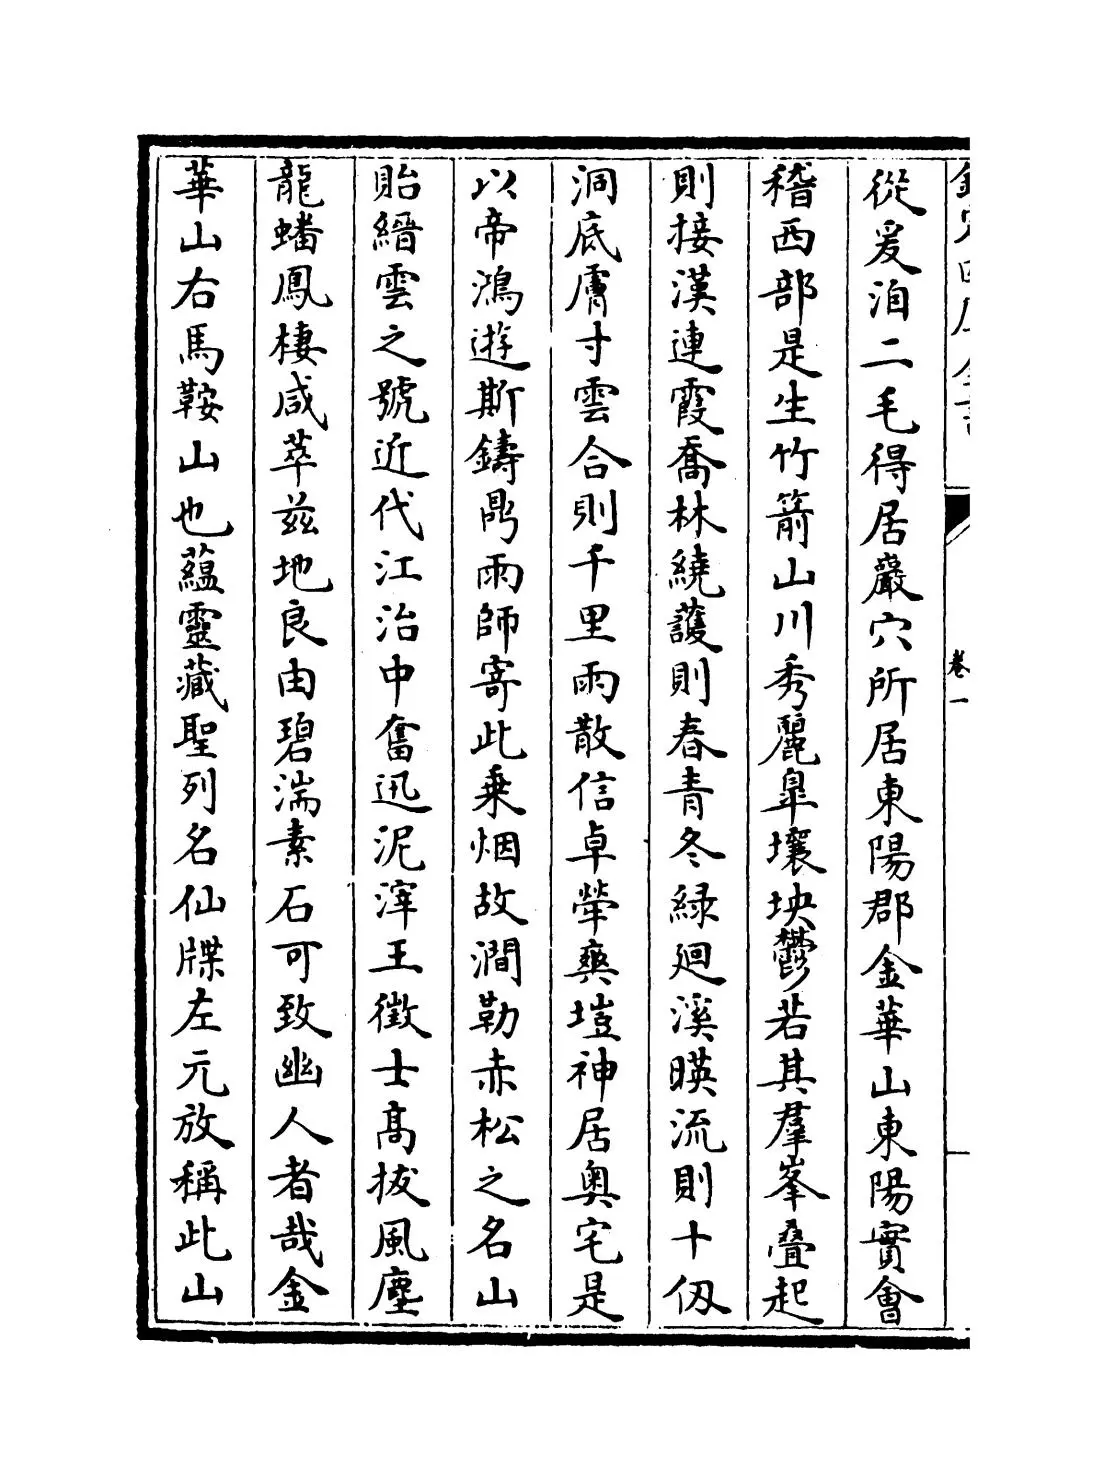 欽定四庫全書
卷一
從爰洎二毛得居巖穴所居東陽郡金華山東陽實會
稽西部是生竹箭山川秀麗臯壤坱鬱若其羣峯疊起
則接漢連霞喬林繞䕶則春青冬緑廻溪暎流則十仭
洞底膚寸雲合則千里雨散信卓犖爽塏神居奥宅是
以帝鴻遊斯鑄鼎雨師寄此乗烟故澗勒赤松之名山
貽縉雲之號近代江治中奮迅泥滓王徵士髙拔風塵
龍蟠鳳棲咸萃兹地良由碧湍素石可致幽人者哉金
華山右馬鞍山也藴靈藏聖列名仙牒左元放稱此山